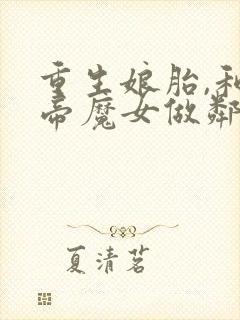 重生娘胎,和
帝魔女做鄰
夏清茗